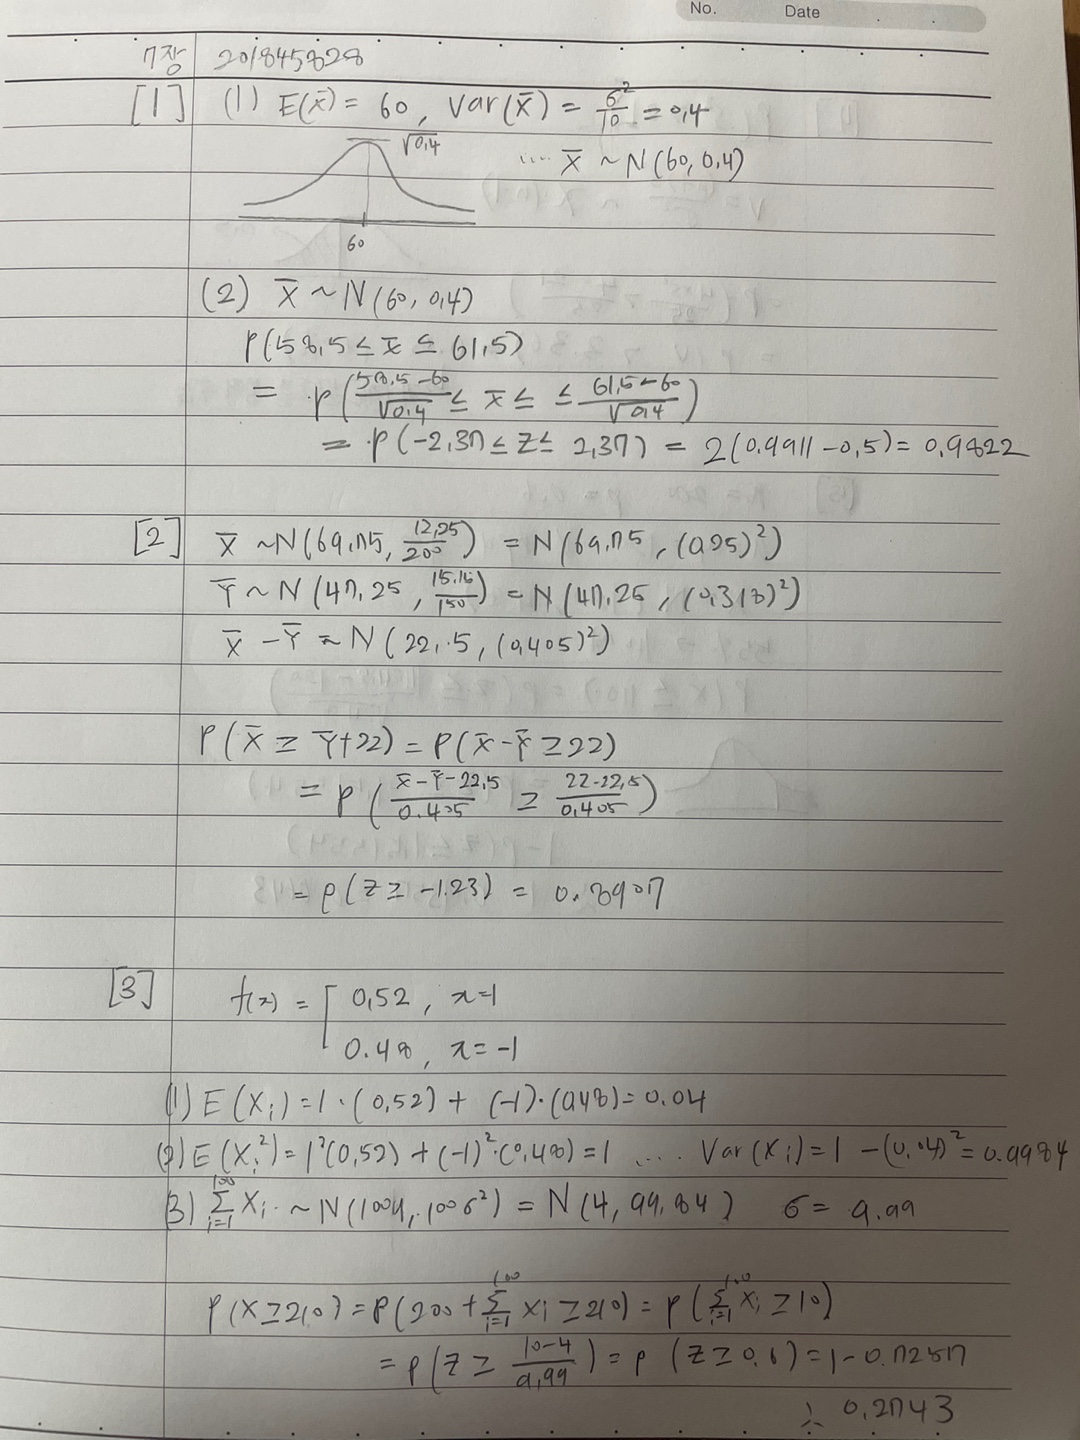 No. Date
7장 201845828
[1] (1) E(X̄) = 60, Var(X̄) = σ²/10 = 0,4
√0,4 ···· X̄ ~ N(60, 0,4)
60
(2) X̄ ~ N(60, 0,4)
P(58,5 ≤ X̄ ≤ 61,5)
= P(58,5-60/√0,4 ≤ X̄ ≤ ≤ 61,5-60/√0,4)
= P(-2,37 ≤ Z ≤ 2,37) = 2(0,9911-0,5) = 0,9822
[2] X̄ ~N(69,75, 12,25/200) = N(69,75, (0,25)²)
Ȳ ~ N(47,25, 15,16/150) = N(47,25, (0,318)²)
X̄ - Ȳ ~ N(22,5, (0,405)²)
P(X̄ ≥ Ȳ+22) = P(X̄-Ȳ ≥ 22)
= P(X̄-Ȳ-22,5/0.405 ≥ 22-22,5/0,405)
= P(Z ≥ -1.23) = 0.8907
[3] f(x) = [ 0,52, x=1
0.48, x=-1
(1) E(Xᵢ) = 1·(0,52) + (-1)·(0,48) = 0.04
(2) E(Xᵢ²) = 1²(0,52) + (-1)²·(0,48) = 1 ···· Var(Xᵢ) = 1 - (0,04)² = 0.9984
(3) Σᵢ₌₁¹⁰⁰ Xᵢ ~ N(100μ, 100σ²) = N(4, 99,84) σ = 9.99
P(X ≥ 210) = P(200 + Σᵢ₌₁¹⁰⁰ Xᵢ ≥ 210) = P(Σᵢ₌₁¹⁰⁰ Xᵢ ≥ 10)
= P(Z ≥ 10-4/9,99) = P(Z ≥ 0,6) = 1-0.7257
∴ 0,2743